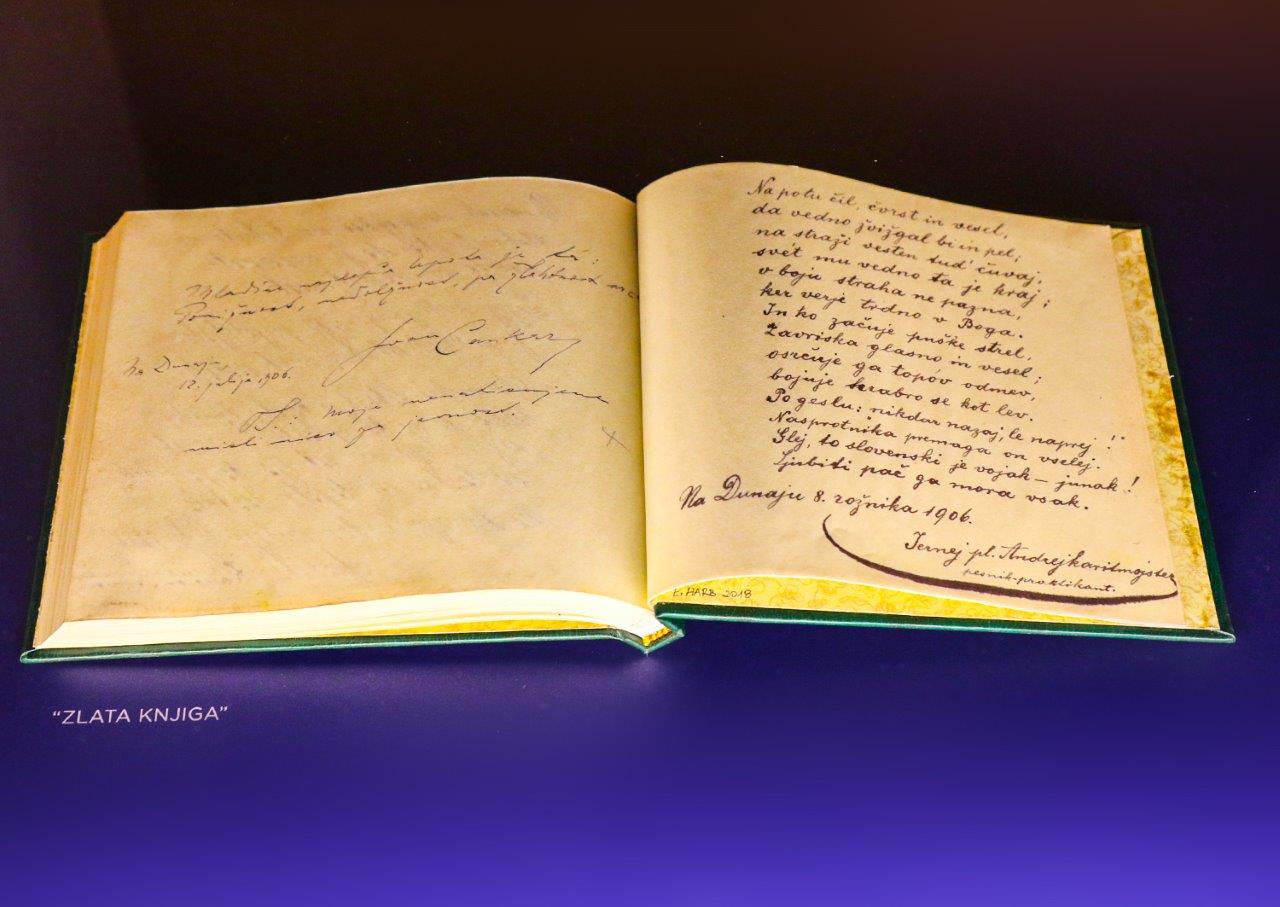 Mladini najlepša lepota je ta:
Ponižnost,
Ivan Cankar
Na Dunaju,
12. julija 1906.
P. S. moje
misli niso za javnost.
Na potu čil, čvrst in vesel,
da vedno žvižgal bi in pel;
na straži vesten tud' čuvaj,
svét mu vedno ta je kraj;
v boju straha ne pazna,
ker verje trdno v Boga.
In ko začuje puške strel,
Zavriska glasno in vesel;
osrčuje ga topóv odmev,
bojuje hrabro se kot lev.
Po geslu: nikdar nazaj, le naprej!"
Nasprotnika premaga on vselej.
Glej, to slovenski je vojak – junak!
Ljubiti pač ga mora vsak.
Na Dunaju 8. rožnika 1906.
Jernej pl. Andrejkaritmojster
pesnik-praktikant.
E. HARB 2018
"ZLATA KNJIGA"